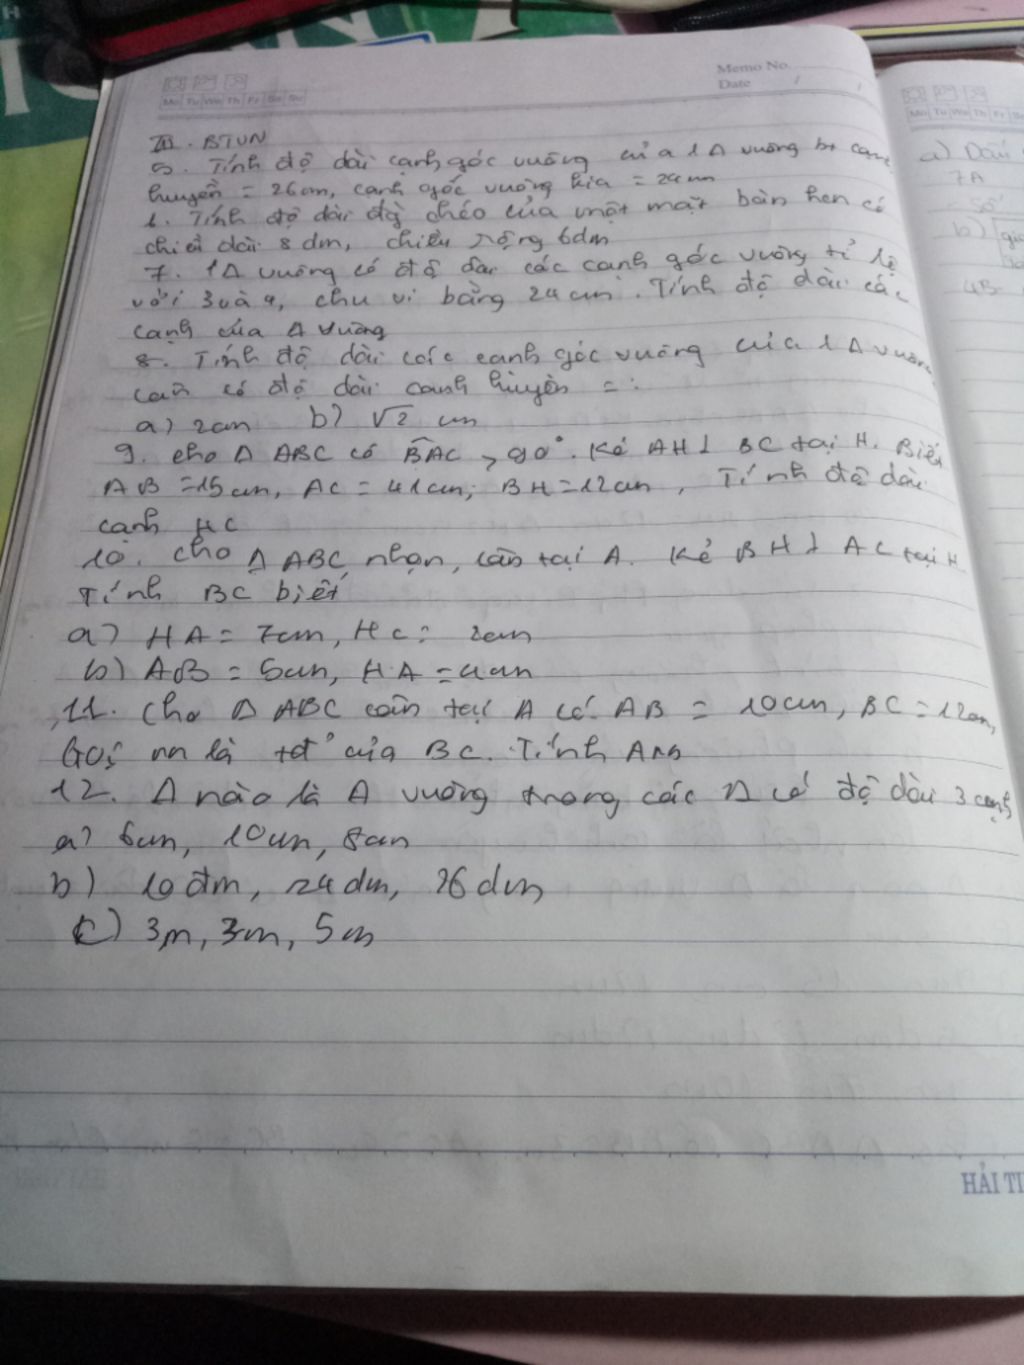 Memo No.
Date
Mo Tu We Th Fr Sa Su
III. BTVN
5. Tính độ dài cạnh góc vuông của 1 Δ vuông bt cạnh
huyền = 26cm, cạnh góc vuông kia = 24cm
6. Tính độ dài đg chéo của một mặt bàn hcn có
chiều dài 8 dm, chiều rộng 6dm
7. 1Δ vuông có độ dài các cạnh góc vuông tỉ lệ
với 3 và 4, chu vi bằng 24 cm. Tính độ dài các
cạnh của Δ vuông
8. Tính độ dài các cạnh góc vuông của 1 Δ vuông
cân có độ dài cạnh huyền = :
a) 2cm b) √2 cm
9. cho Δ ABC có BAC > 90°. Kẻ AH ⊥ BC tại H. Biết
AB = 15cm, AC = 41cm, BH = 12cm, Tính độ dài
cạnh HC
10. cho Δ ABC nhọn, cân tại A. Kẻ BH ⊥ AC tại H
Tính BC biết
a) HA = 7cm, HC = 2cm
b) AB = 5cm, HA = 4cm
11. Cho Δ ABC cân tại A có AB = 10cm, BC = 12cm,
Gọi M là tđ của BC. Tính AM
12. Δ nào là Δ vuông trong các Δ có độ dài 3 cạnh
a) 6cm, 10cm, 8cm
b) 10 dm, 24 dm, 26 dm
c) 3m, 3m, 5m
HẢI TI
Mo Tu We Th Fr
a)
7A
b)